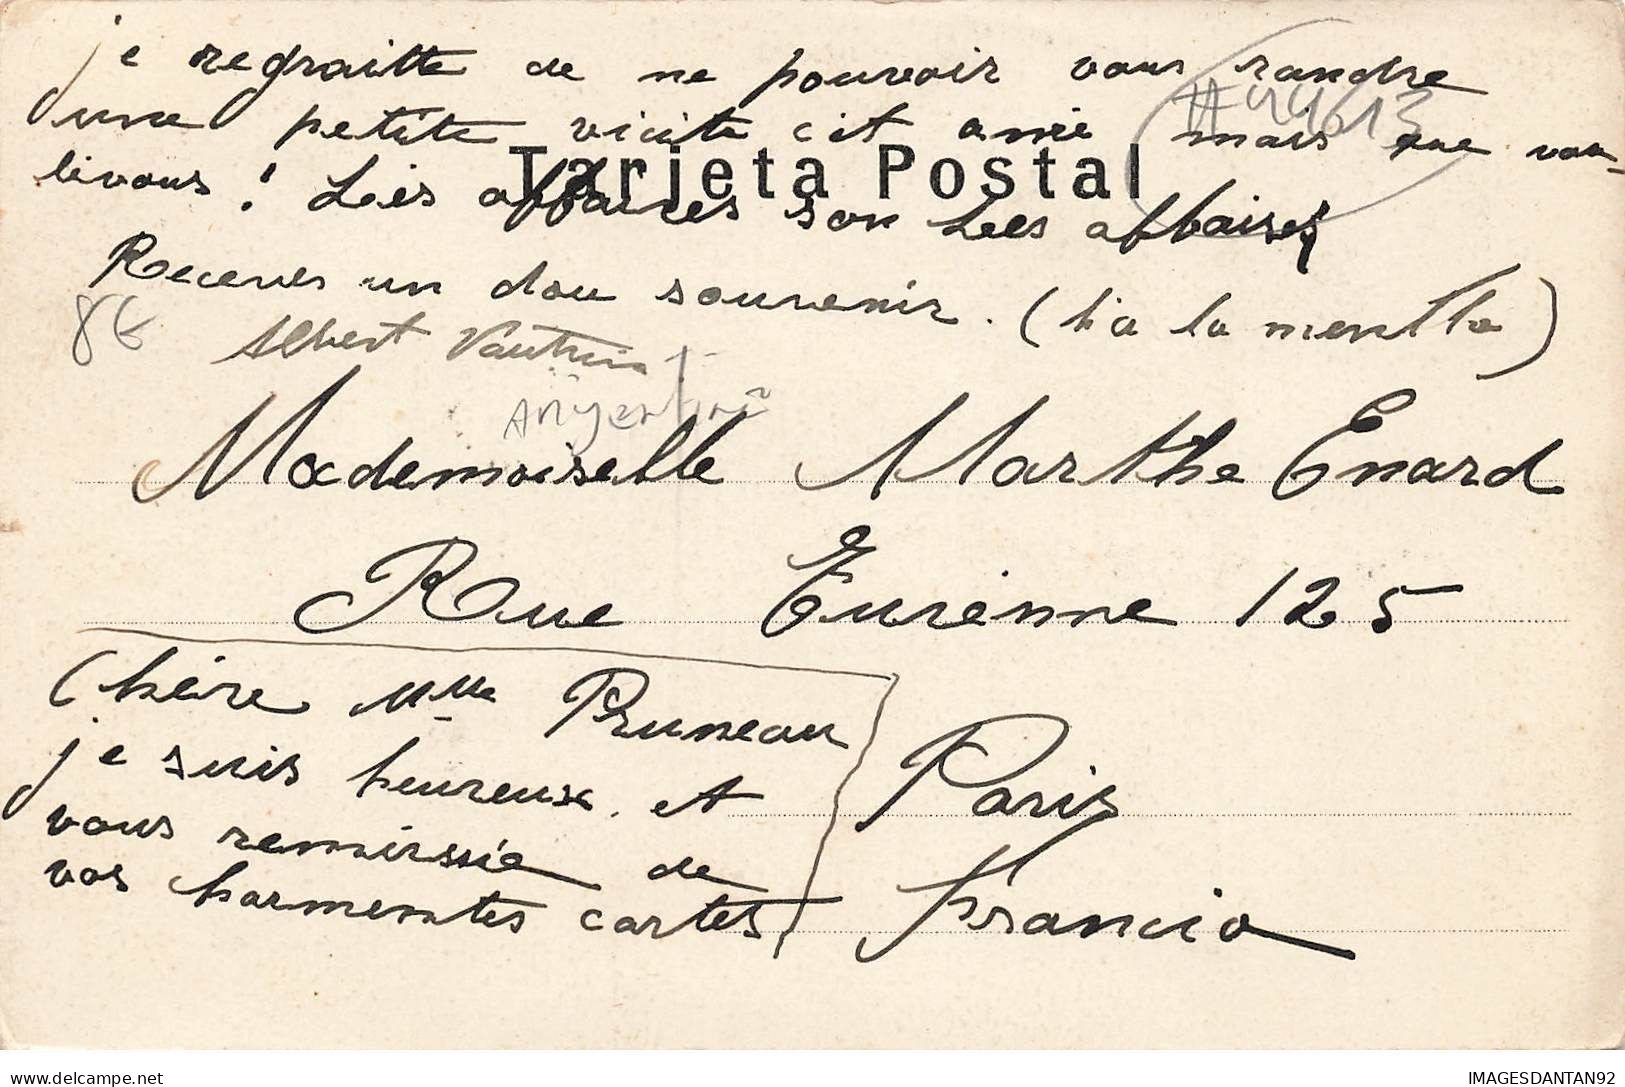 je regraitte de ne pouvoir vous randre
une petite vicite cit anie mais que vou-
livous ! Lès affaires son Lees affaires
Tarjeta Postal
#44613
Receves un dou souvenir. (h'a la menthe)
8€
Albert Vautrin
Argentine
Mademoiselle Marthe Enard
Rue Turenne 125
Chère Mlle Pruneau
je suis heureux et
vous remirssie de
vos harmentes cartes
Paris
Francia
delcampe.net
IMAGESDANTAN92